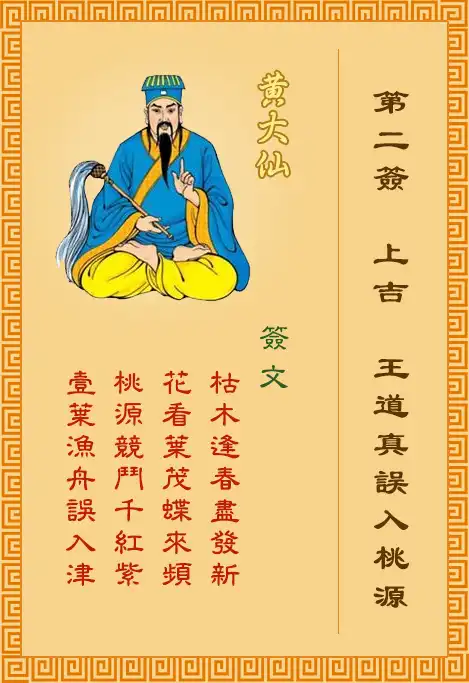 第二簽 上吉 王道真誤入桃源
黃大仙
簽文
枯木逢春盡發新
花看葉茂蝶來頻
桃源競鬥千紅紫
壹葉漁舟誤入津